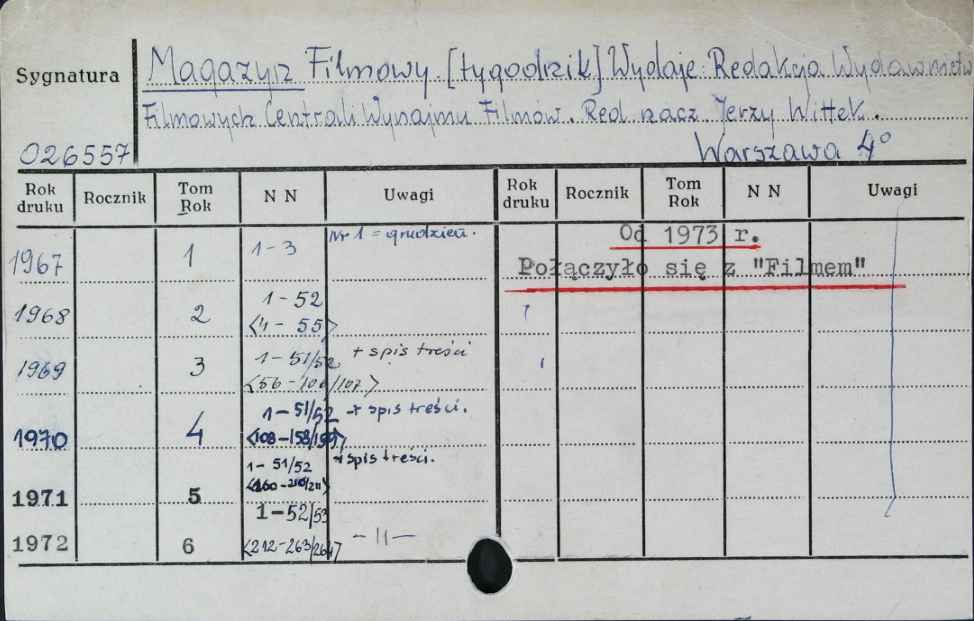 Sygnatura Magazyn Filmowy [tygodnik] Wydaje: Redakcja Wydawnictw
Filmowych Centrali Wynajmu Filmów. Red. nacz. Jerzy Wittek.
026557 Warszawa 4°
Rok druku Rocznik Tom Rok N N Uwagi Rok druku Rocznik Tom Rok N N Uwagi
1967 1 1-3 Nr 1 = grudzień. Od 1973 r.
Połączyło się z "Filmem"
1968 2 1-52
<4-55>
1969 3 1-51/52 + spis treści
<56-106/107>
1970 4 1-51/52 + spis treści.
<108-158/159>
1971 5 1-51/52 + spis treści.
<160-210/211>
1972 6 1-52/53
<212-263/264> -||-